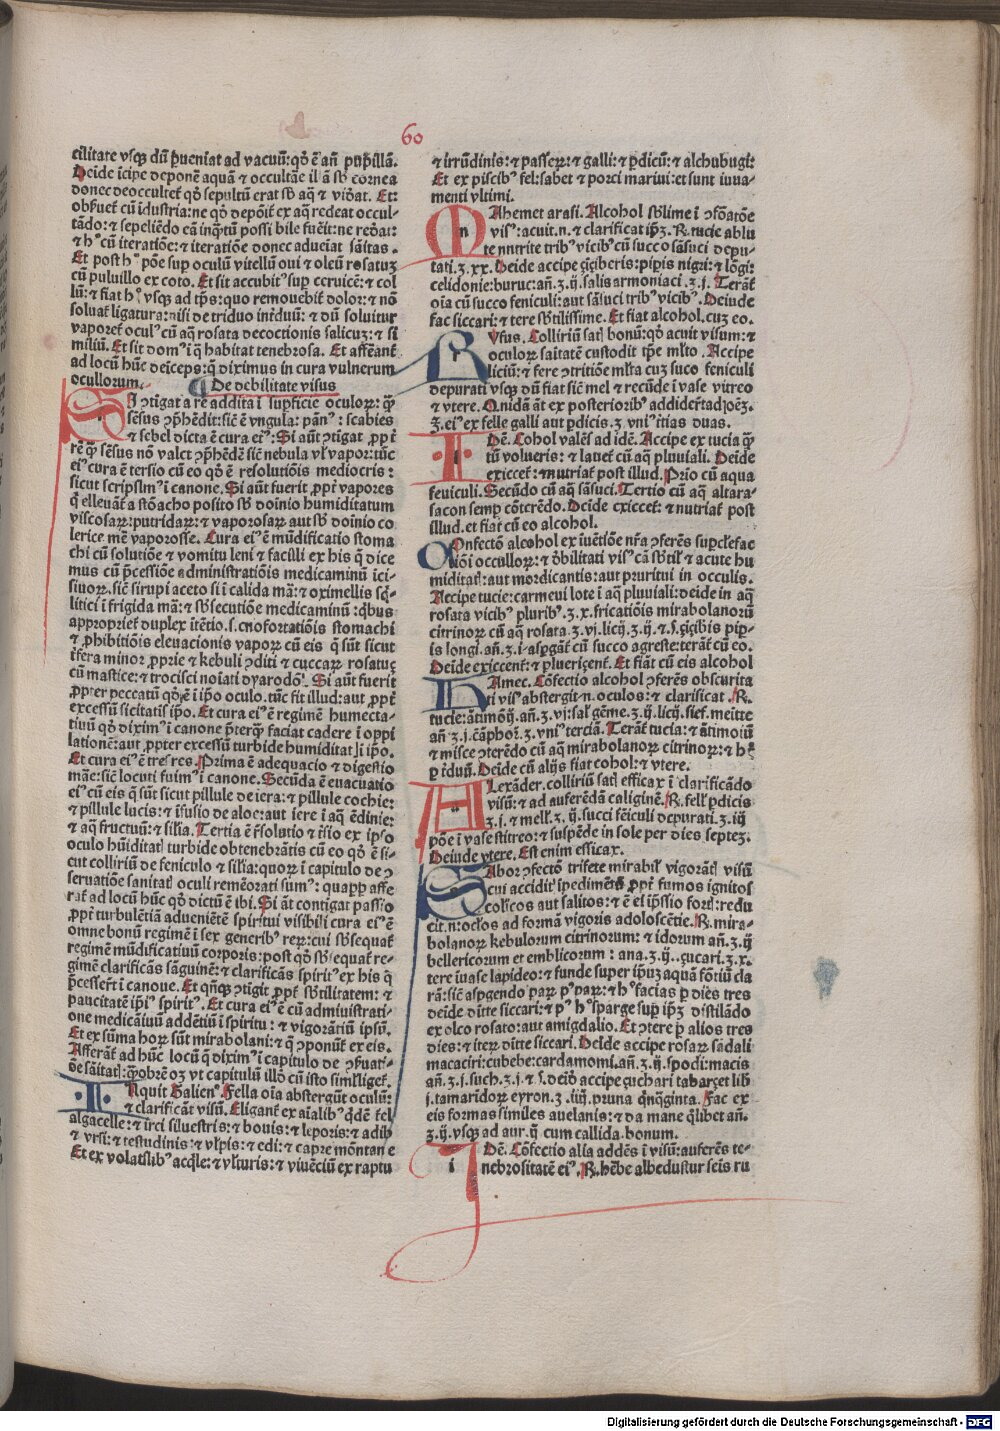 60
cilitate vsq; dũ ꝑueniat ad vacuũ: qđ ē añ pupillã.
Deide icipe deponē aquã & occultãe il ã sb cornea
donec deoccultet qđ sepultũ erat sb aq̃ & viðat. Et:
obseruet cũ idustria: ne qđ depõit ex aq̃ redeat occul-
tãdo: & sepeliẽdo eã inq̃tũ possi bile fuẽit: ne reðat:
& hº cũ iteratiõe: & iteratiõe donec adueiat sãitas.
Et post hº põe sup oculũ vitellũ oui & oleũ rosatuʒ
cũ puluillo ex coto. Et sit accubitº sup ceruicẽ: & col
lũ: & fiat hº vsq; ad tp̃s: quo remouebit dolor: & nõ
soluat ligatura: nisi de triduo in triduũ: & dũ soluitur
vaporet oculº cũ aq̃ rosata decoctionis salicuʒ: & si
miliũ. Et sit domº i q̃ habitat tenebrosa. Et afferant
ad locũ hũc deiceps: q̃ diximus in cura vulnerum
ocullorum.
De debilitate visus
SI ɔtigat a re addita i supficie oculoꝝ: q̃
sẽsus ɔp̃hẽdit: sic ẽ vngula: pãnº: scabies
& sebel dicta ẽ cura eiº: Si aũt ɔtigat ꝓpt
rẽ q̃ sẽsus nõ valet ɔp̃hẽdẽ sic nebula vl vapor: tũc
eiº cura ẽ tersio cũ eo qđ ẽ resolutiõis mediocris:
sicut scripsimº i canone. Si aũt fuerit ꝓpt vapores
q̃ elleuãt a stõacho posito sb doinio humiditatum
viscosaꝝ: putridaꝝ: & vaporosaꝝ aut sb doinio co
lerice mẽ vaporosse. Cura eiº ẽ mũdificatio stoma
chi cũ solutiõe & vomitu leni & facili ex his q̃ dice
mus cũ p̃cessiõe administratiõis medicaminũ ici-
siuoꝝ. sic sirupi aceto si i calida mã: & oximellis sq̃-
litici i frigida mã: & sbsecutiõe medicaminũ: qbus
appropriet duplex itẽtio. s. cnofortatiõis stomachi
& ꝓhibitiõis eleuacionis vapoꝝ cũ eis q̃ sũt sicut
ifera minor ꝓprie & kebuli ɔditi & cuccaꝝ rosatuʒ
cũ mastice: & trocisci noiati dyarodõ. Si aũt fuerit
ꝓpter peccatũ qđ ẽ i ipõ oculo. tũc fit illud: aut ꝓpt
excessũ sicitatis ipõ. Et cura eiº ẽ regimẽ humecta-
tiuũ qđ diximº i canone p̃terq̃ faciat cadere i oppi
lationẽ: aut ꝓpter excessũ turbide humiditatis i ipõ.
Et cura eiº ẽ tres res. Prima ẽ adequacio & digestio
mãe: sic locuti fuimº i canone. Secũda ẽ euacuatio
eiº cũ eis q̃ sũt sicut pillule de iera: & pillule cochie:
& pillule lucis: & ifusio de aloe: aut iere i aq̃ ẽdinie:
& aq̃ fructuũ: & silia. Tertia ẽ rsolutio & tsio ex ipso
oculo hũiditatis turbide obtenebrãtis cũ eo qđ ẽ si-
cut colliriũ de feniculo & silia: quoꝝ i capitulo de ɔ
seruatiõe sanitatis oculi remẽorati sumº: quapp affe
rat ad locũ hũc qđ dictũ ẽ ibi. Si aũt contigat passio
ꝓpt turbulẽtiã aduenietẽ spiritui visibili cura eiº ẽ
omne bonũ regimẽ i sex generibº reꝝ: cui sbsequat
regimẽ mũdificatiuũ corporis: post qđ sbsequat re-
gimẽ clarificãs sãguinẽ: & clarificãs spiritº ex his q̃
p̃cesserũt i canone. Et qñq; ɔtigit ꝓpt sbtilitatem: &
paucitatẽ ipiº spiritº. Et cura eiº ẽ cũ administrati-
one medicãiuũ addẽtiũ i spiritu: & vigorãtiũ ipsũ.
Et ex sũma hoꝝ sũt mirabolani: & q̃ ɔponũt ex eis.
Afferãt ad hũc locũ q̃ diximº i capitulo de ɔseruati-
õe sãitatis: q̃obrẽ oʒ vt capitulũ illõ cũ isto similiget.
INquit Galienº. Fella oĩa abstergũt oculũ:
& clarificãt visũ. Eligant ex aialibº q̃dẽ fel
algacelle: & irci siluestris: & bouis: & leporis: & adib
& vrsi: & testudinis: & vlpis: & edi: & capre mõntan e
Et ex volatilibº acq̃le: & vlturis: & viuẽciũ ex raptu
& irrũdinis: & passeꝝ: & galli: & ꝑdicũ: & alchubugi:
Et ex piscibº fel: sabet & porci marini: et sunt iuua-
menti vltimi.
MAhemet arasi. Alcohol sblime i ɔfõatõe
visº: acuit. n. & clarificat ipʒ. R. tucie ablu
te nntrite tribº vicibº cũ succo sãsuci depu-
tati. ʒ. xx. Deide accipe çiçiberis: pipis nigri: & lõgi:
celidonie: buruc: añ. ʒ. ij. salis armoniaci .ʒ. j. Terãt
oĩa cũ succo feniculi: aut sãsuci tribº vicibº. Deiude
fac siccari: & tere sbtilissime. Et fiat alcohol. cuʒ eo.
RVfus. Colliriũ satis bonũ: qđ acuit visum: &
oculoꝝ saitatẽ custodit tpe mlto. Accipe
liciũ: & fere ɔtritiõe mlta cuʒ suco feniculi
depurati vsq; dũ fiat sic mel & recũde i vase vitreo
& vtere. Quidã ãt ex posterioribº addidert ad hoc eʒ.
ʒ. eiº ex felle galli aut ꝑdicis. ʒ vniº itias duas.
IDẽ. Cohol valẽs ad idẽ. Accipe ex tucia q̃
tũ volueris: & lauet cũ aq̃ pluuiali. Deide
exiccet: & nutriat post illud. Prio cũ aqua
feuiculi. Secũdo cũ aq̃ sãsuci. Tertio cũ aq̃ altara-
sacon semp cõterẽdo. Deide exiccet: & nutriat post
illud. et fiat cũ eo alcohol.
COnfectõ alcohol ex iuẽtiõe nra ɔferẽs supcl efac
tiõi occulloꝝ: & ðbilitati visº cã sbtilis & acute hu
miditatis: aut mordicantis: aut pruritui in occulis.
Accipe tucie: carmeui lote i aq̃ pluuiali: deide in aq̃
rosata vicibº pluribº. ʒ. x. fricatiõis mirabolanorũ
citrinoꝝ cũ aq̃ rosata. ʒ. vj. licij. ʒ. ij. & s. çiçibis pip-
is longi. añ. ʒ. i. aspgãt cũ succo agreste: terãt cũ eo.
Deide exiccent: & pluerigent. Et fiãt cũ eis alcohol
HAmec. Cõfectio alcohol ɔferẽs obscurita
ti visº abstergit. n. oculos: & clarificat. R.
tucie: ãtimõij. añ. ʒ. vj: sal gẽme. ʒ. ij. licij. sief. meitte
añ. ʒ. j. cãphor. ʒ. vniº terciã. Terãt tucia: & ãtimoiũ
& misce ɔterẽdo cũ aq̃ mirabolanoꝝ citrinoꝝ: & hº
ꝑ triduũ. Deide cũ alijs fiat cohol: & vtere.
ALexãder. colliriũ satis efficax i clarificãdo
visũ: & ad auferẽdã caliginẽ. R. fellis ꝑdicis
ʒ. j. & mell. ʒ. ij. succi feiculi depurati. ʒ. iij
põe i vase stitreo: & suspẽde in sole per dies septeʒ.
Deiude vtere. Est enim efficax.
SAbor ɔfectõ trifete mirabilis vigorãtis visũ
cui accidit ipedimẽtũ ꝓpt fumos ignitos
colicos aut salitos: & ẽ ei ipssio fortis: redu
cit. n: oclos ad formã vigoris adoloscẽtie. R. mira-
bolanoꝝ kebulorum citrinorum: & idorum añ. ʒ. ij
bellericorum et emblicorum: ana. ʒ. ij.. çucari. ʒ. x.
tere iuase lapideo: & funde super ipuʒ aquã fõtiũ cla
rã: sic aspgendo paꝝ pº paꝝ: & hº facias ꝑ dies tres
deide ditte siccari: & pº hº sparge sup ipʒ distilãdo
ex olco rosato: aut amigdalio. Et ɔtere ꝑ alios tres
dies: & iteꝝ ditte siccari. Deide accipe rosaꝝ sadali
macaciri: cubebe: cardamomi. añ. ʒ. ij. spodi: macis
añ. ʒ. j. such. ʒ. j. & s. deiõ accipe çuchari tabarçet lib
j. tamaridoꝝ eyron. ʒ. iiij. pruna qnq̃ginta. Fac ex
eis formas similes auelanis: & da mane q̃libet añ.
ʒ. ij. vsq; ad aur. ij cum callida bonum.
IDẽ. Cõfectio alia addẽs i visũ: auferẽs te-
nebrositatẽ eiº. R. hẽbe albedustur seis ru
Digitalisierung gefördert durch die Deutsche Forschungsgemeinschaft - DFG